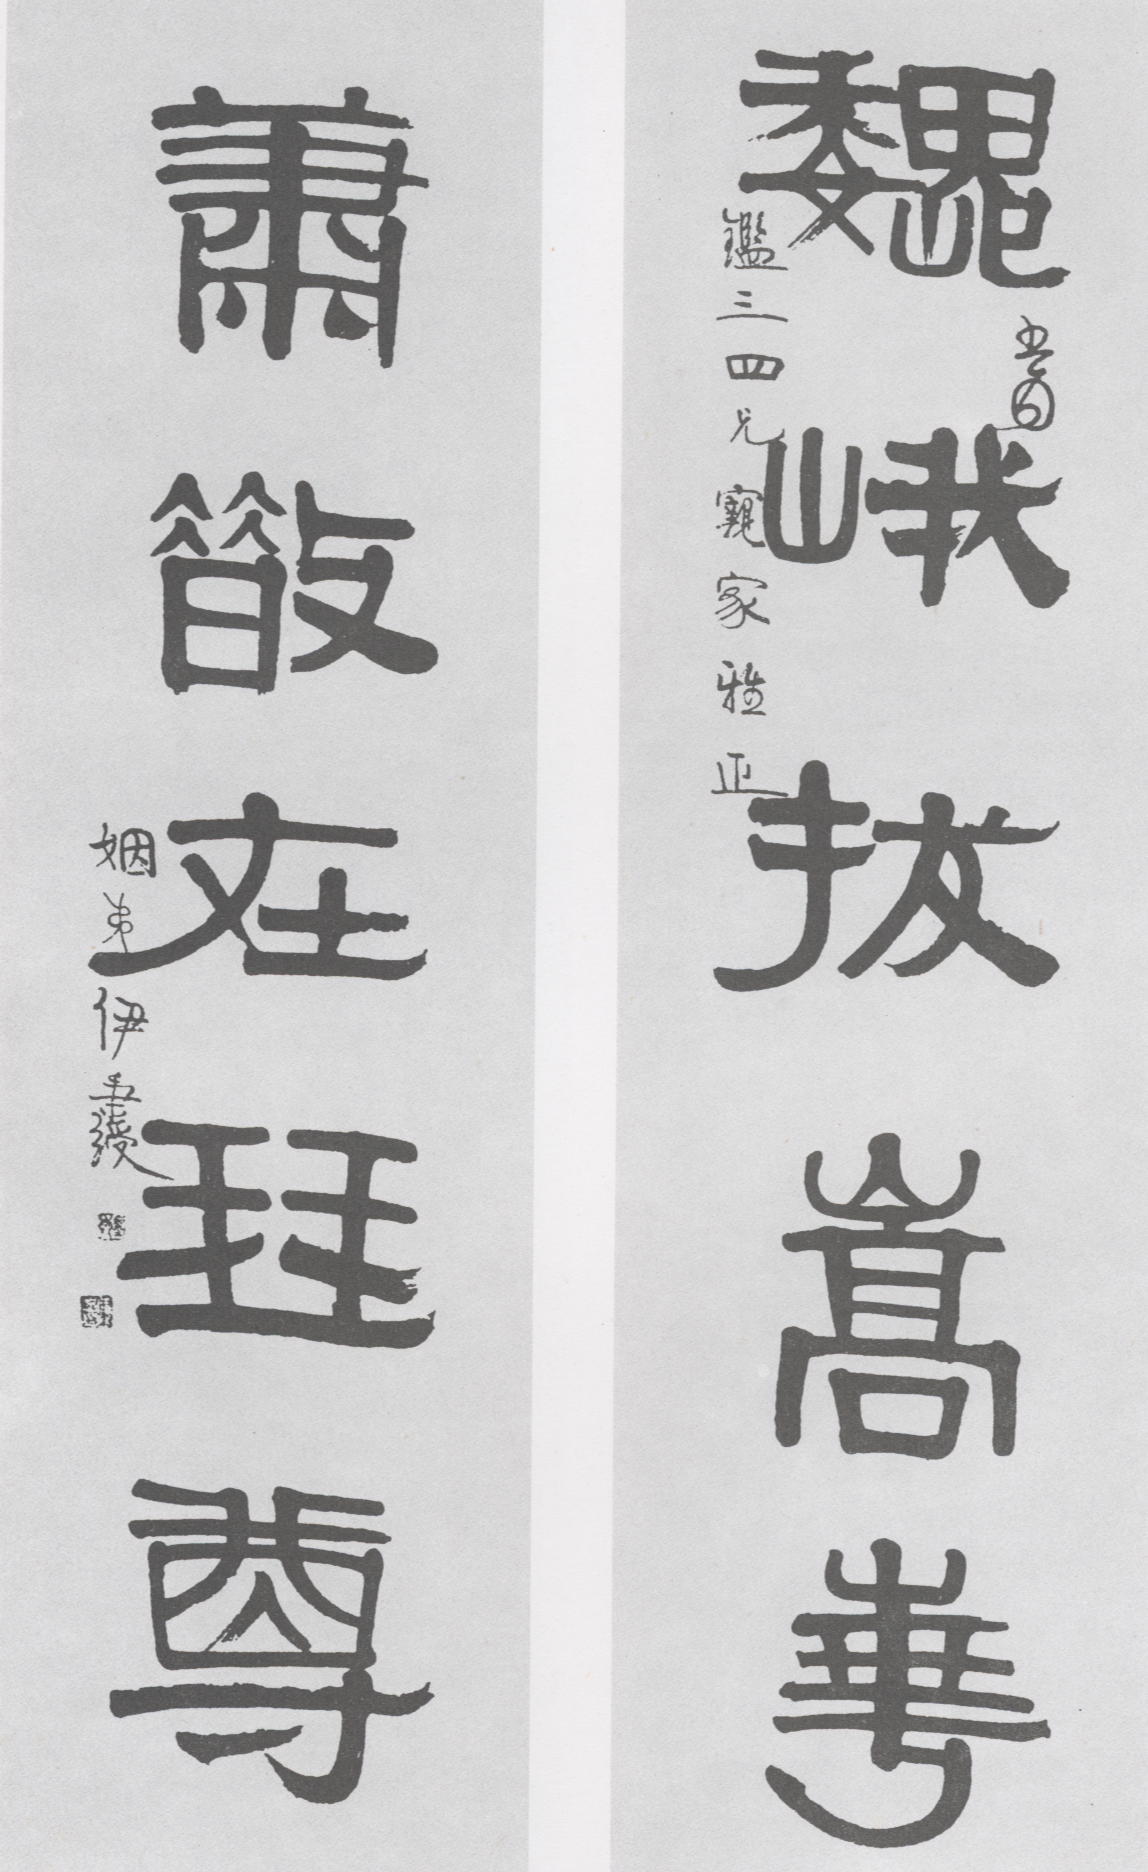 魏峨拔嵩華
鑑三四兄親家雅正
蕭散在珡尊
姻弟伊秉綬